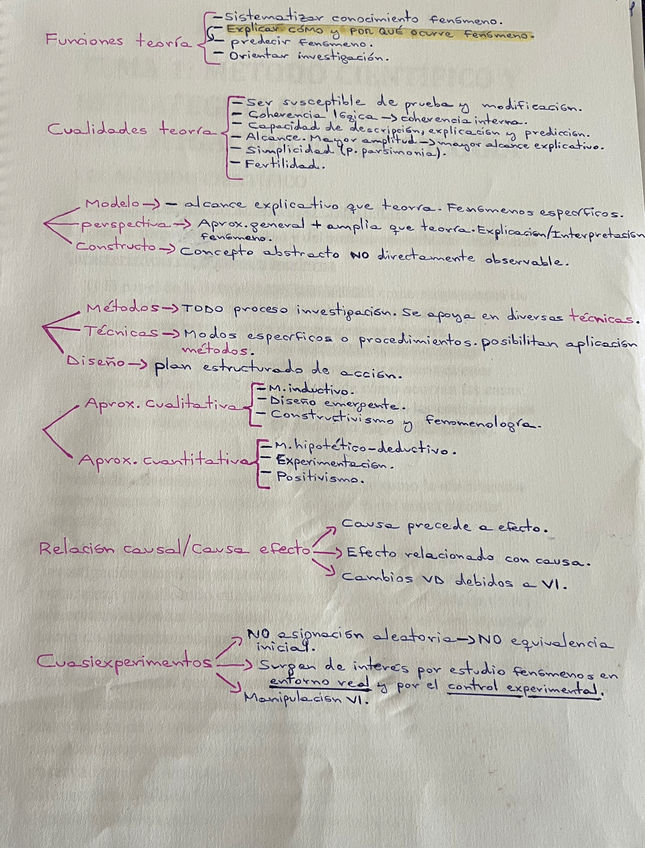 Funciones teoría
- Sistematizar conocimiento fenómeno.
- Explicar CÓMO y POR QUÉ ocurre fenómeno.
- predecir fenómeno.
- Orientar investigación.
Cualidades teoría
- Ser susceptible de prueba y modificación.
- Coherencia lógica → coherencia interna.
- Capacidad de descripción, explicación y predicción.
- Alcance. Mayor amplitud → mayor alcance explicativo.
- Simplicidad (p. parsimonia).
- Fertilidad.
Modelo → - alcance explicativo que teoría. Fenómenos específicos.
perspectiva → Aprox. general + amplia que teoría. Explicación/Interpretación
fenómeno.
Constructo → Concepto abstracto NO directamente observable.
Métodos → TODO proceso investigación. Se apoya en diversas técnicas.
Técnicas → Modos específicos o procedimientos. posibilitan aplicación
métodos.
Diseño → plan estructurado de acción.
Aprox. cualitativa
- M. inductivo.
- Diseño emergente.
- Constructivismo y fenomenología.
Aprox. cuantitativa
- M. hipotético-deductivo.
- Experimentación.
- Positivismo.
Relación causal/Causa efecto
Causa precede a efecto.
Efecto relacionado con causa.
Cambios VD debidos a VI.
Cuasiexperimentos
NO asignación aleatoria → NO equivalencia
inicial.
Surgen de interés por estudio fenómenos en
entorno real y por el control experimental.
Manipulación VI.